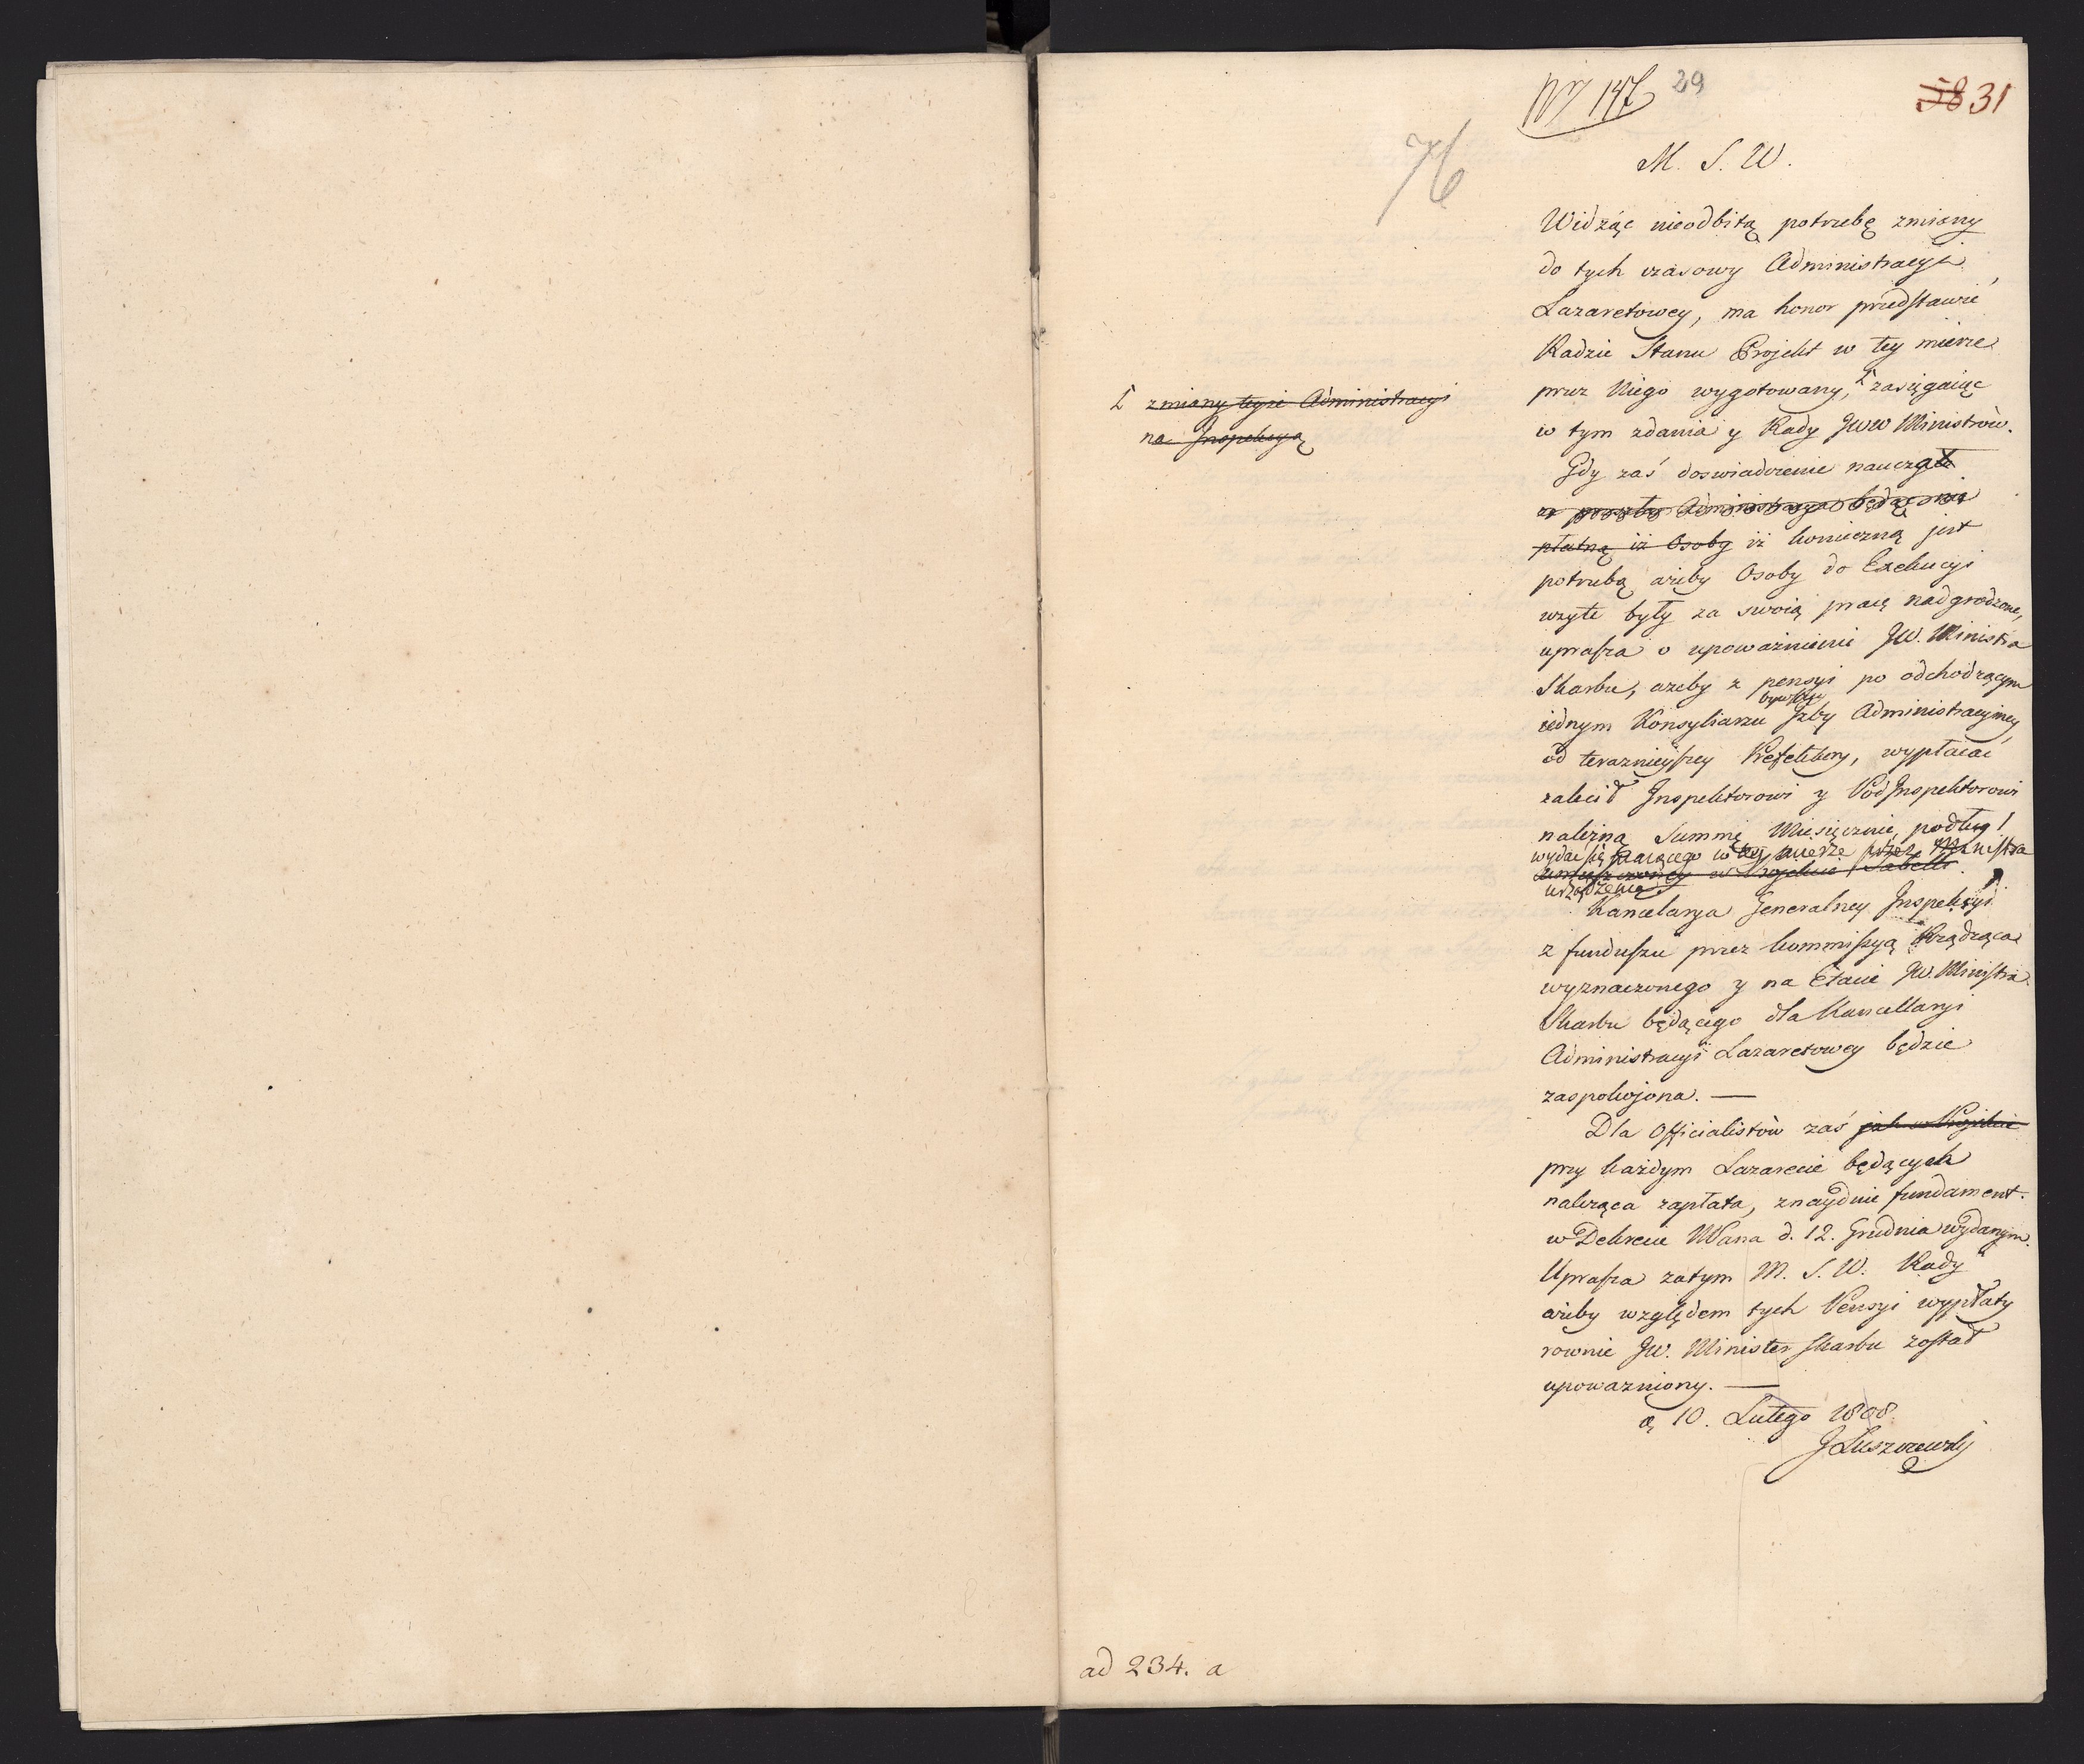 N 147 29
58 31
76
M. S. W.
Widząc nieodbitą potrzebę zmiany
do tych czasowy Administracyi
Lazaretowey, ma honor przedstawić
Radzie Stanu Projekt w tey mierze
przez Niego wygotowany, zasięgaiąc
w tym zdania y Rady JWW Ministrów.
zmiany teyże Administracyi
na Inspekcyą
Gdy zaś doswiadczenie nauczyło
Administracya będąc nie
płatną iż Osoby iż konieczną jest
potrzebą ażeby Osoby do Exekucyi
wzyte były za swoią pracę nadgrodzone,
uprasza o upoważnienie JW. Ministra
Skarbu, azeby z pensyi po odchodzącym
iednym Konsyliarzu bywszey Izby Administracyiney
od teraznieyszey Prefektury, wypłacać
zalecił Inspektorowi y PodInspektorowi
należną Summę Miesięcznie, podług
wydać się maiącego w tey mierze przez Ministra
w Projekcie Tabelli
urządzenia
Kancelarya Generalney Inspekcyi
z funduszu przez Kommissyą Rządzącą
wyznaczonego y na Etacie JW. Ministra
Skarbu będącego dla Kancellaryi
Administracyi Lazaretowey będzie
zaspokojona. —
Dla Officialistów zaś jak w Projekcie
przy każdym Lazarecie będących
należąca zapłata, znaydzie fundament
w Dekrecie WPana d. 12. Grudnia wydanym.
Uprasza zatym M. S. W. Rady
ażeby względem tych Pensyi wypłaty
rownie JW. Minister Skarbu został
upoważniony. —
d. 10. Lutego 1808.
J Łuszczewski
ad 234. a